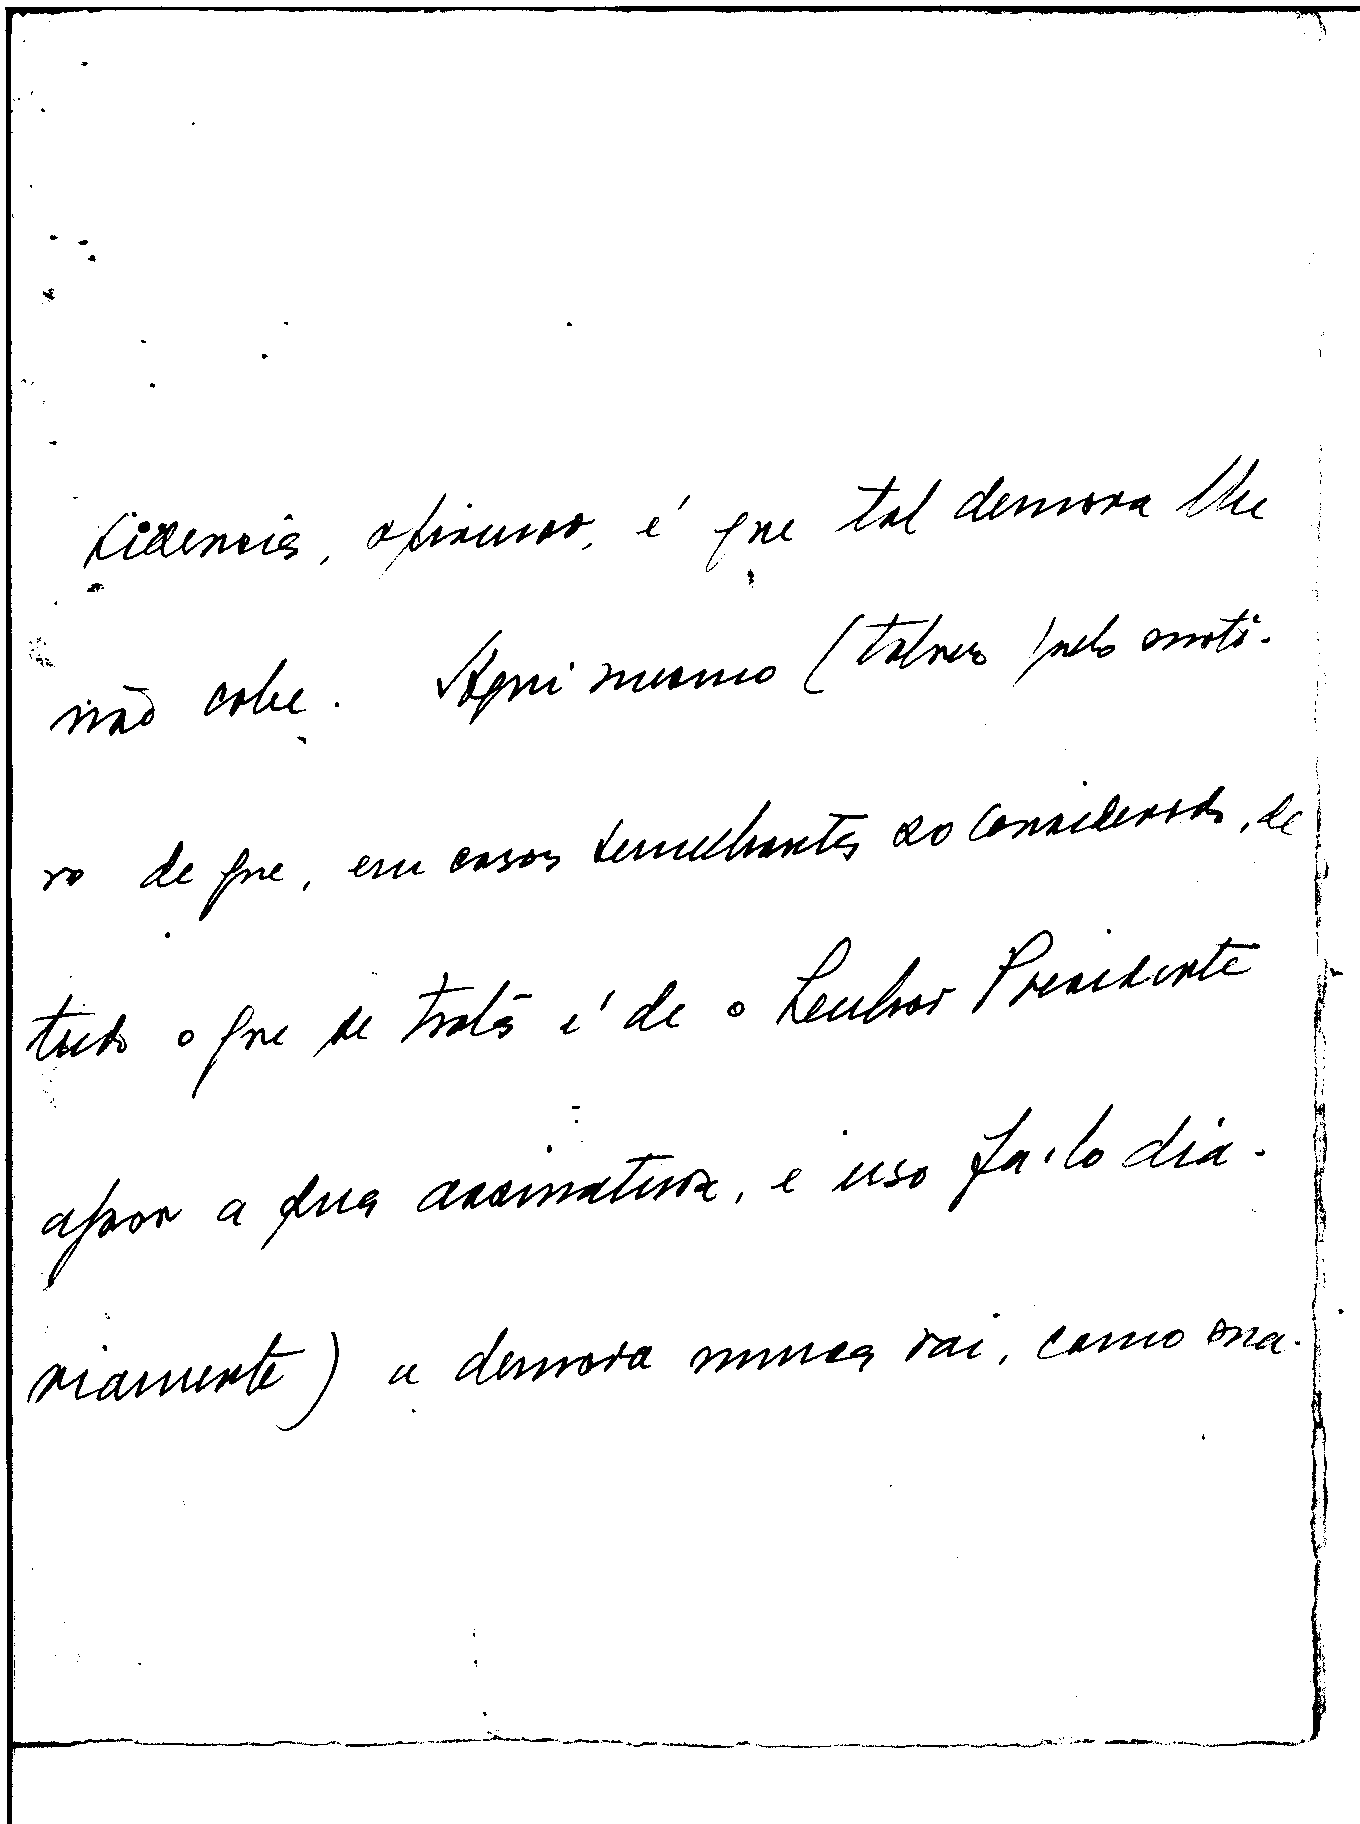 sidencia, afirmar, é que tal demora lhe
não cabe. Aqui mesmo (talvez pelo moti-
vo de que, em casos semelhantes ao considerado, de
tudo o que se trata é de o Senhor Presidente
apor a sua assinatura, e isso fa-lo dia-
riamente) a demora nunca vai, como ma-